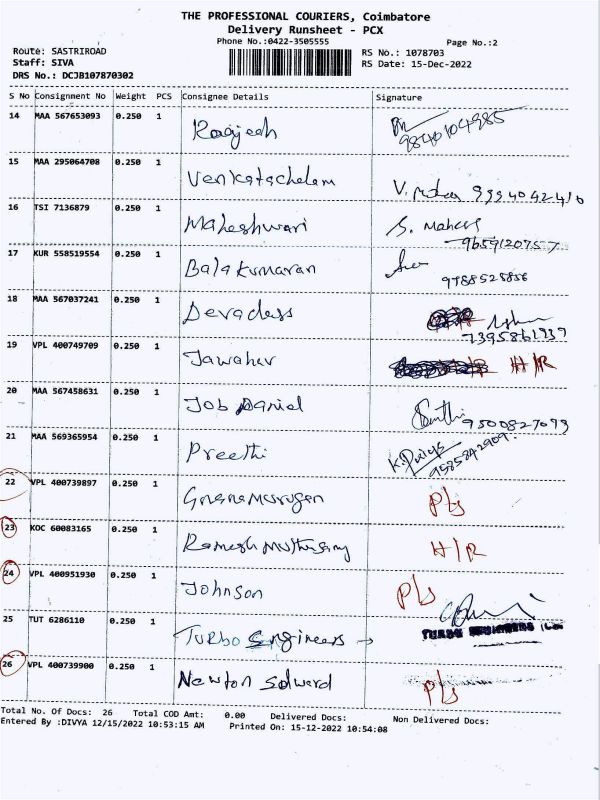 THE PROFESSIONAL COURIERS, Coimbatore
Delivery Runsheet - PCX
Phone No.:0422-3505555 Page No.:2
Route: SASTRIROAD RS No.: 1078703
Staff: SIVA RS Date: 15-Dec-2022
DRS No.: DCJB107870302
S No Consignment No Weight PCS Consignee Details Signature
14 MAA 567653093 0.250 1 Rajesh 9840104985
15 MAA 295064708 0.250 1 Venkatachalam V. 9994042416
16 TSI 7136879 0.250 1 Maheshwari S. Mahes 9659120757
17 KUR 558519554 0.250 1 Balakumaran 9788525856
18 MAA 567037241 0.250 1 Devadass 7395861939
19 VPL 400749709 0.250 1 Jawahar H/R
20 MAA 567458631 0.250 1 Job Daniel 9500827093
21 MAA 569365954 0.250 1 Preethi 9585842909
22 VPL 400739897 0.250 1 Gnanamurugan P/s
23 KOC 60083165 0.250 1 Ramesh Muthusamy H/R
24 VPL 400951930 0.250 1 Johnson P/s
25 TUT 6286110 0.250 1 Turbo Engineers → TURBO ENGINEERS
26 VPL 400739900 0.250 1 Newton Edward P/s
Total No. Of Docs: 26 Total COD Amt: 0.00 Delivered Docs: Non Delivered Docs:
Entered By :DIVYA 12/15/2022 10:53:15 AM Printed On: 15-12-2022 10:54:08